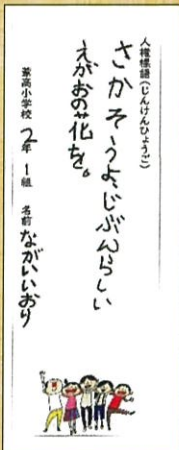 人権標語(じんけんひょうご)
さかそうよ、じぶんらしい
えがおの花を。
葦高小学校 2年 1組 名前 ながいいおり